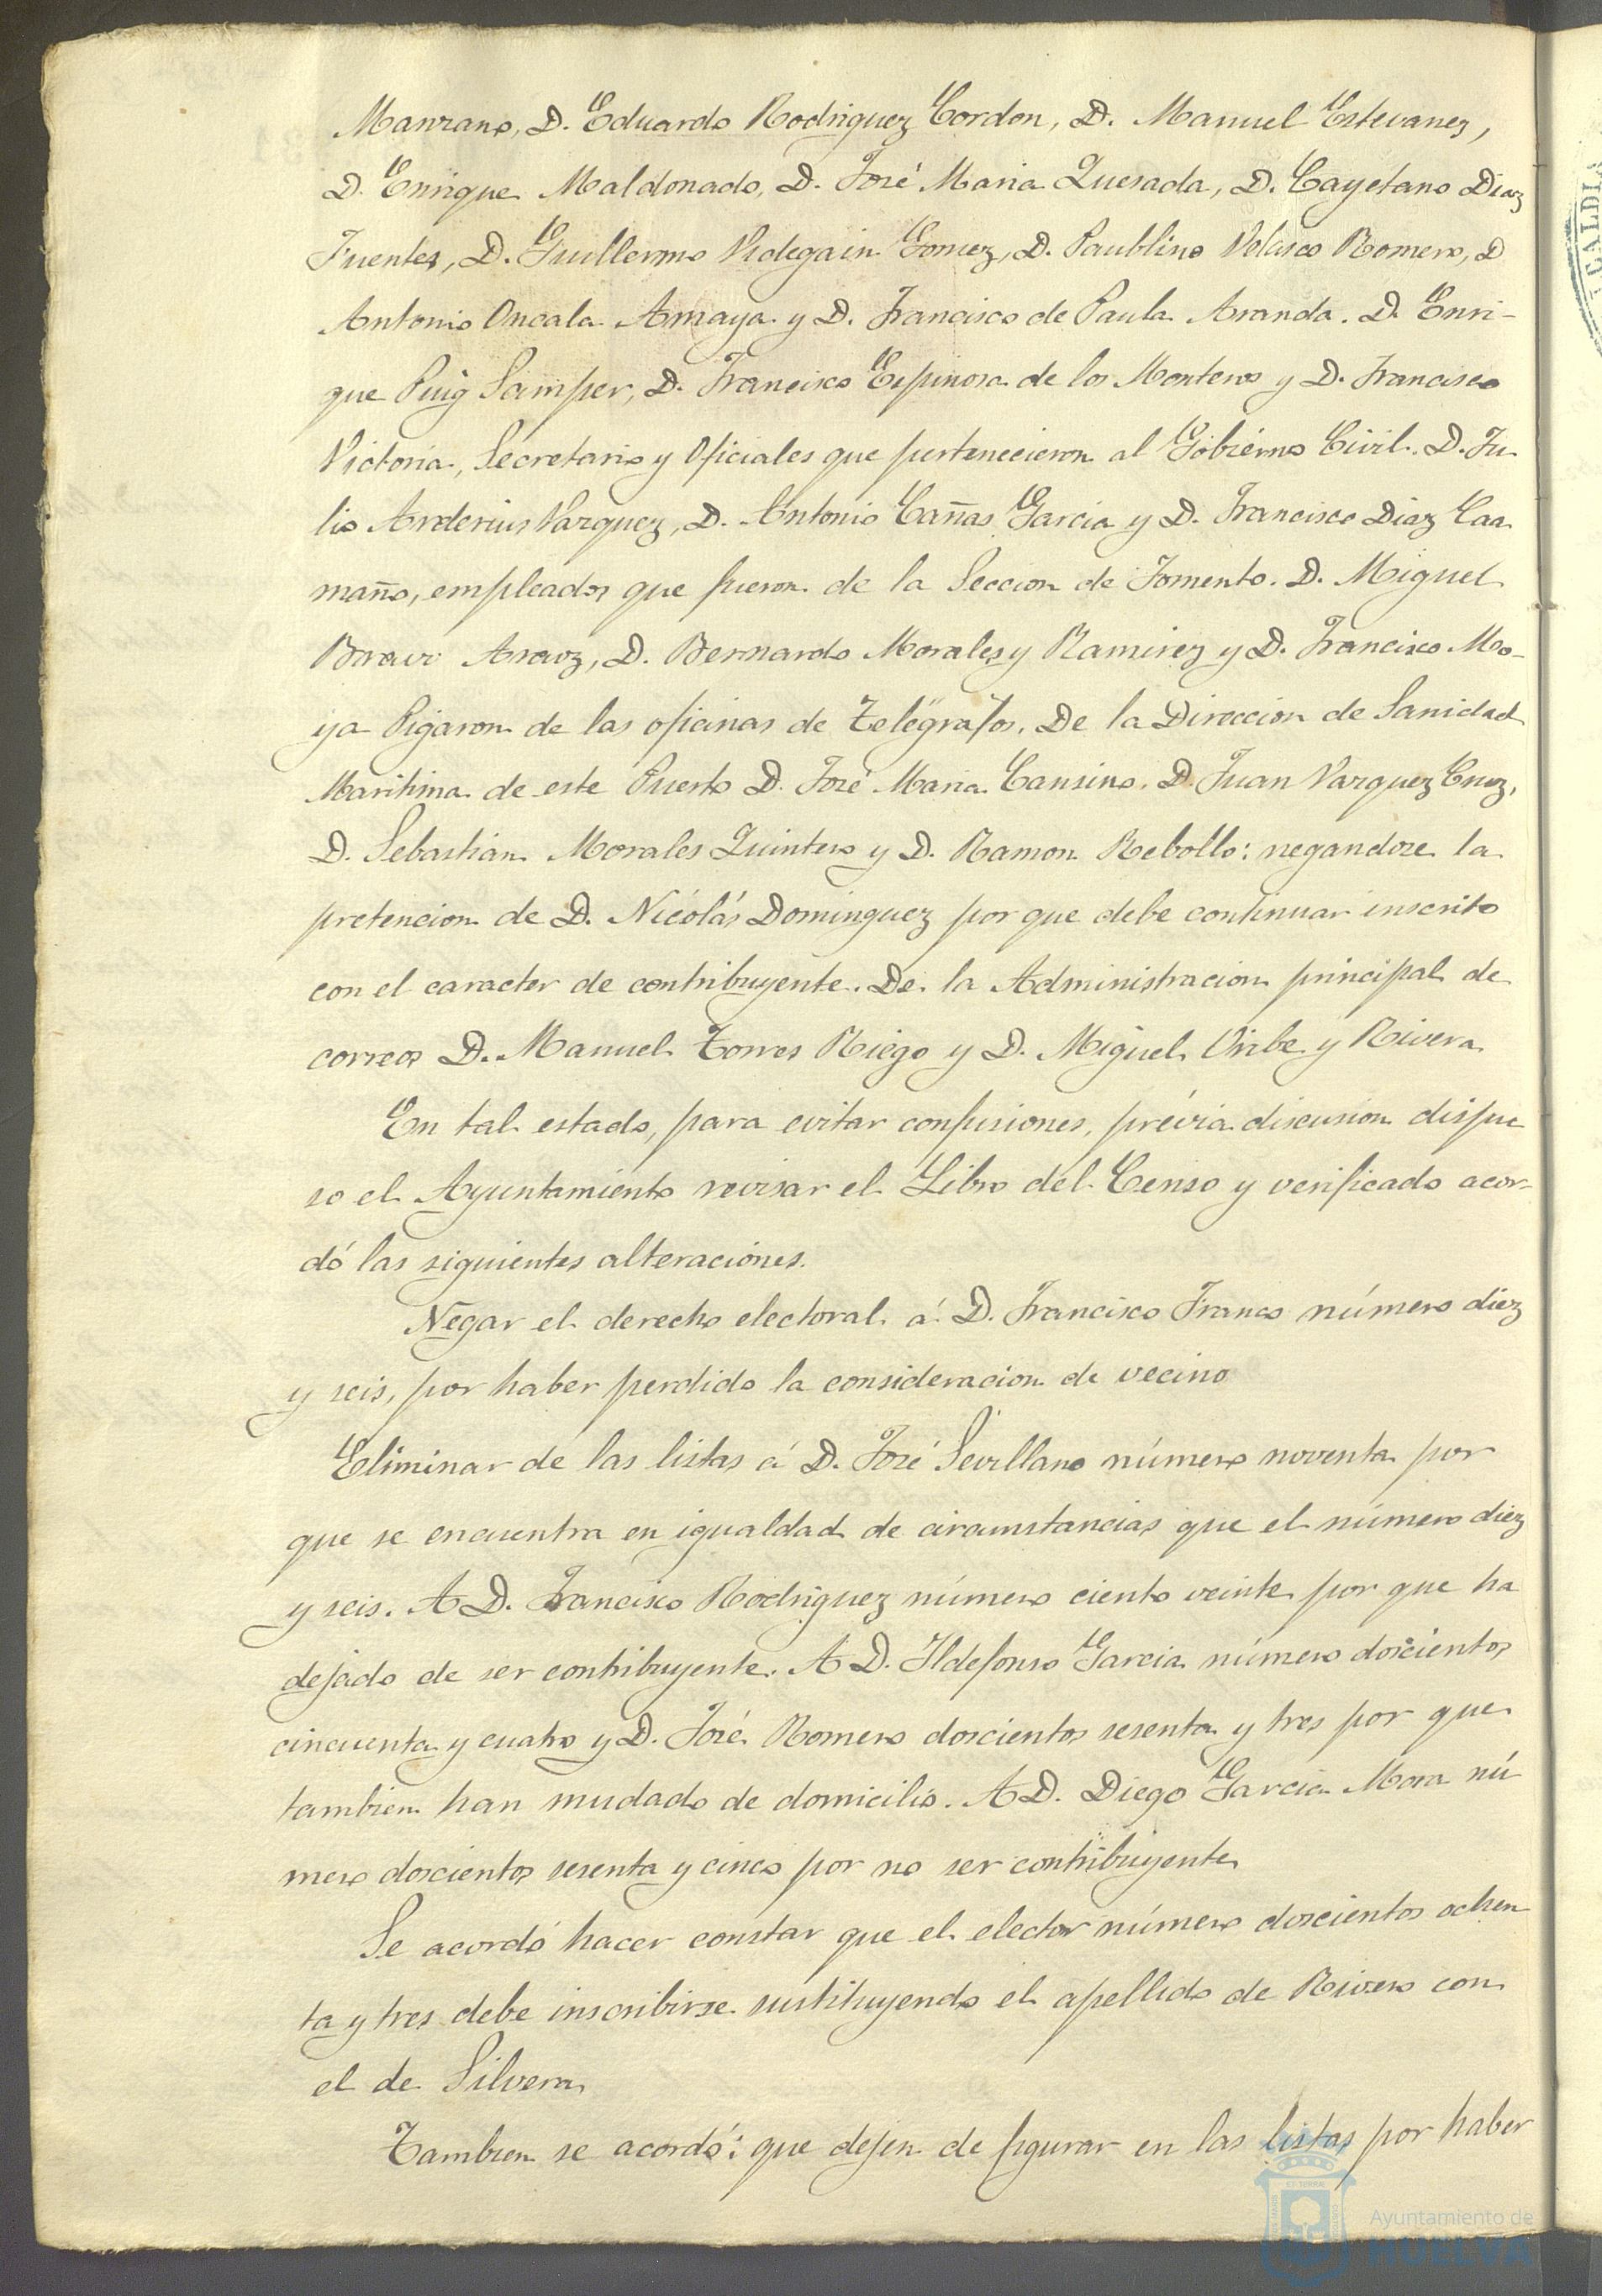 Manzano, D. Eduardo Rodriguez Cordon, D. Manuel Estevanez,
D. Enrique Maldonado, D. José Maria Quesada, D. Cayetano Diaz
Fuentes, D. Guillermo Videgain Gomez, D. Paublino Velasco Romero, D
Antonio Oncala Amaya y D. Francisco de Paula Aranda. D. Enri-
que Puig Samper, D. Francisco Espinosa de los Monteros y D. Francisco
Victoria, Secretario y Oficiales que pertenecieron al Gobierno Civil. D. Ju
lio Arderius Vazquez, D. Antonio Cañas Garcia y D. Francisco Diaz Caa
maño, empleados que fueron de la Seccion de Fomento. D. Miguel
Bravo Araoz, D. Bernardo Morales y Ramirez y D. Francisco Mo-
ya Pigaron de las oficinas de Telégrafos. De la Direccion de Sanidad
Maritima de este Puerto D. José Maria Cansino. D. Juan Vazquez Cruz,
D. Sebastián Morales Quintero y D. Ramon Rebollo: negandose la
pretencion de D. Nicolás Dominguez por que debe continuar inscrito
con el caracter de contribuyente. De la Administracion principal de
correos D. Manuel Torres Riego y D. Miguel Uribe y Rivera
En tal estado, para evitar confusiones, prévia discusion dispu
so el Ayuntamiento revisar el Libro del Censo y verificado acor-
dó las siguientes alteraciones.
Negar el derecho electoral á D. Francisco Franco número diez
y seis, por haber perdido la consideracion de vecino
Eliminar de las listas á D. José Sevillano número noventa por
que se encuentra en igualdad de circunstancias que el número diez
y seis. A D. Francisco Rodriguez número ciento veinte por que ha
dejado de ser contribuyente. A D. Ildefonso Garcia número doscientos
cincuenta y cuatro y D. José Romero doscientos sesenta y tres por que
tambien han mudado de domicilio. A D. Diego Garcia Mora nú
mero doscientos sesenta y cinco por no ser contribuyente
Se acordó hacer constar que el elector número doscientos ochen
ta y tres debe inscribirse sustituyendo el apellido de Rivero con
el de Silvera
Tambien se acordó: que dejen de figurar en las listas por haber
Ayuntamiento de
HUELVA